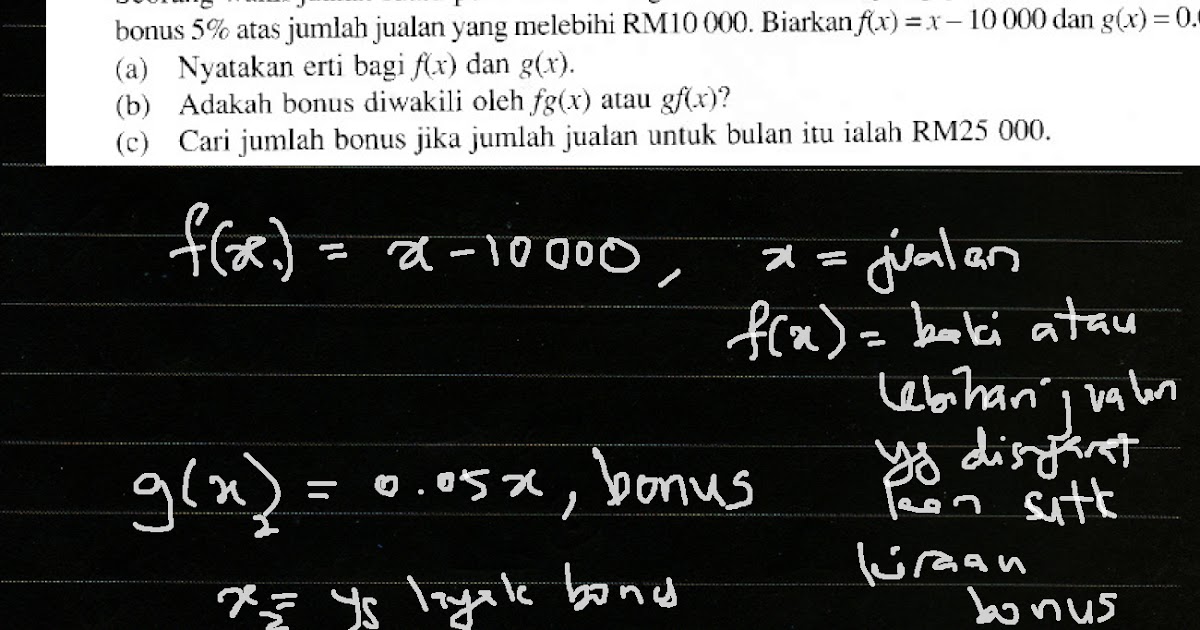 bonus 5% atas jumlah jualan yang melebihi RM10 000. Biarkan f(x) = x – 10 000 dan g(x) = 0.
(a) Nyatakan erti bagi f(x) dan g(x).
(b) Adakah bonus diwakili oleh fg(x) atau gf(x)?
(c) Cari jumlah bonus jika jumlah jualan untuk bulan itu ialah RM25 000.
f(x) = x - 10 000, x = jualan
f(x) = baki atau
lebihan jualan
yg disyarat
kan
kiraan
bonus
g(x₂) = 0.05x, bonus
x₂ = yg layak bonus